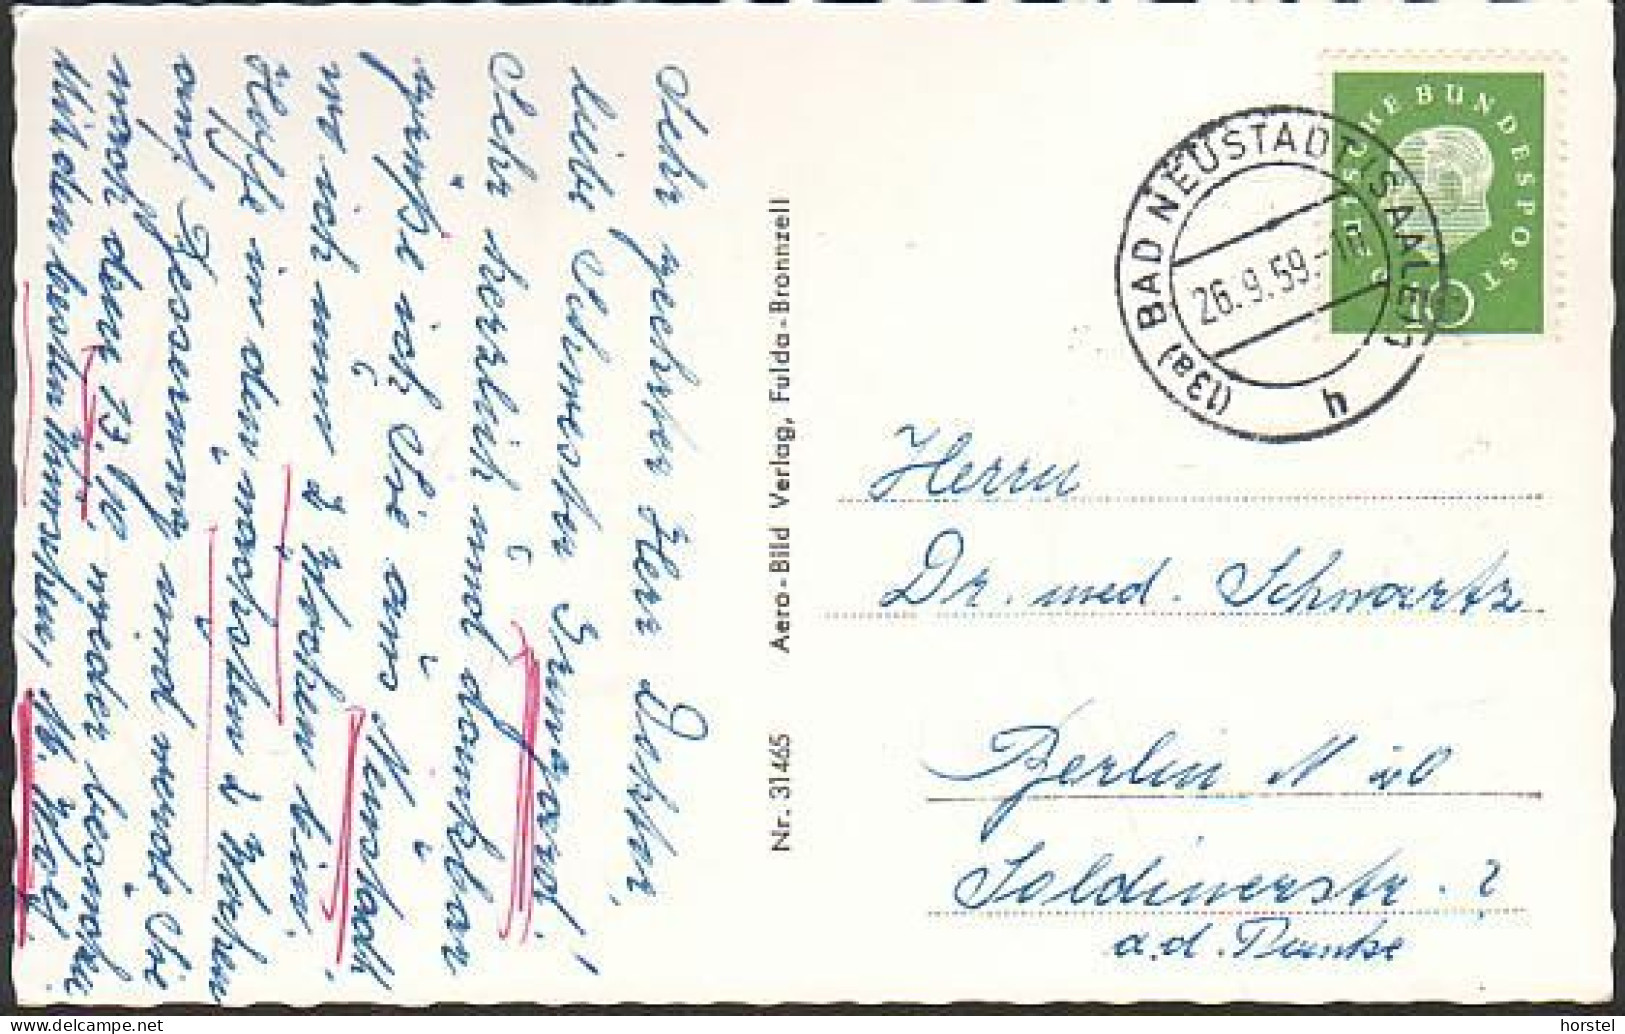 Sehr geehrter Herr Doktor,
liebe Schwester Irmgard!
Sehr herzlich und dankbar
grüße ich Sie aus Neustadt,
wo ich nun 2 Wochen bin.
Hoffe in den nächsten 2 Wochen
auf Besserung und werde Sie
nach dem 13. wieder
Mit den besten Wünschen,
Aero-Bild Verlag, Fulda-Bronnzell
Nr. 31465
DEUTSCHE BUNDESPOST
10
(13a) BAD NEUSTADT (SAALE) 1
26.9.59.-1
h
Herrn
Dr. med. Schwartz
Berlin N
Soldinerstr. 2
a.d. Panke
© delcampe.net
horstel